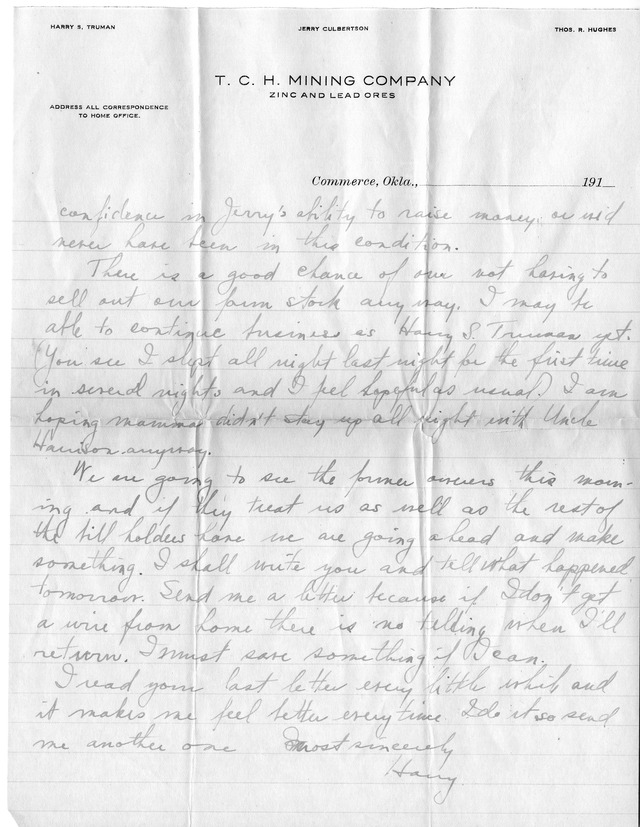 HARRY S. TRUMAN
JERRY CULBERTSON
THOS. R. HUGHES
T. C. H. MINING COMPANY
ZINC AND LEAD ORES
ADDRESS ALL CORRESPONDENCE
TO HOME OFFICE.
Commerce, Okla., 191
confidence in Jerry's ability to raise money or we'd
never have been in this condition.
There is a good chance of our not having to
sell out our farm stock anyway. I may be
able to continue business as Harry S. Truman yet.
You see I slept all night last night for the first time
in several nights and I feel hopeful as usual. I am
hoping mamma didn't stay up all night with Uncle
Harrison anyway.
We are going to see the former owners this morn-
ing and if they treat us as well as the rest of
the bill holders have we are going ahead and make
something. I shall write you and tell what happened
tomorrow. Send me a letter because if I don't get
a wire from home there is no telling when I'll
return. I must save something if I can.
I read your last letter every little while and
it makes me feel better every time I do it so send
me another one Most sincerely
Harry